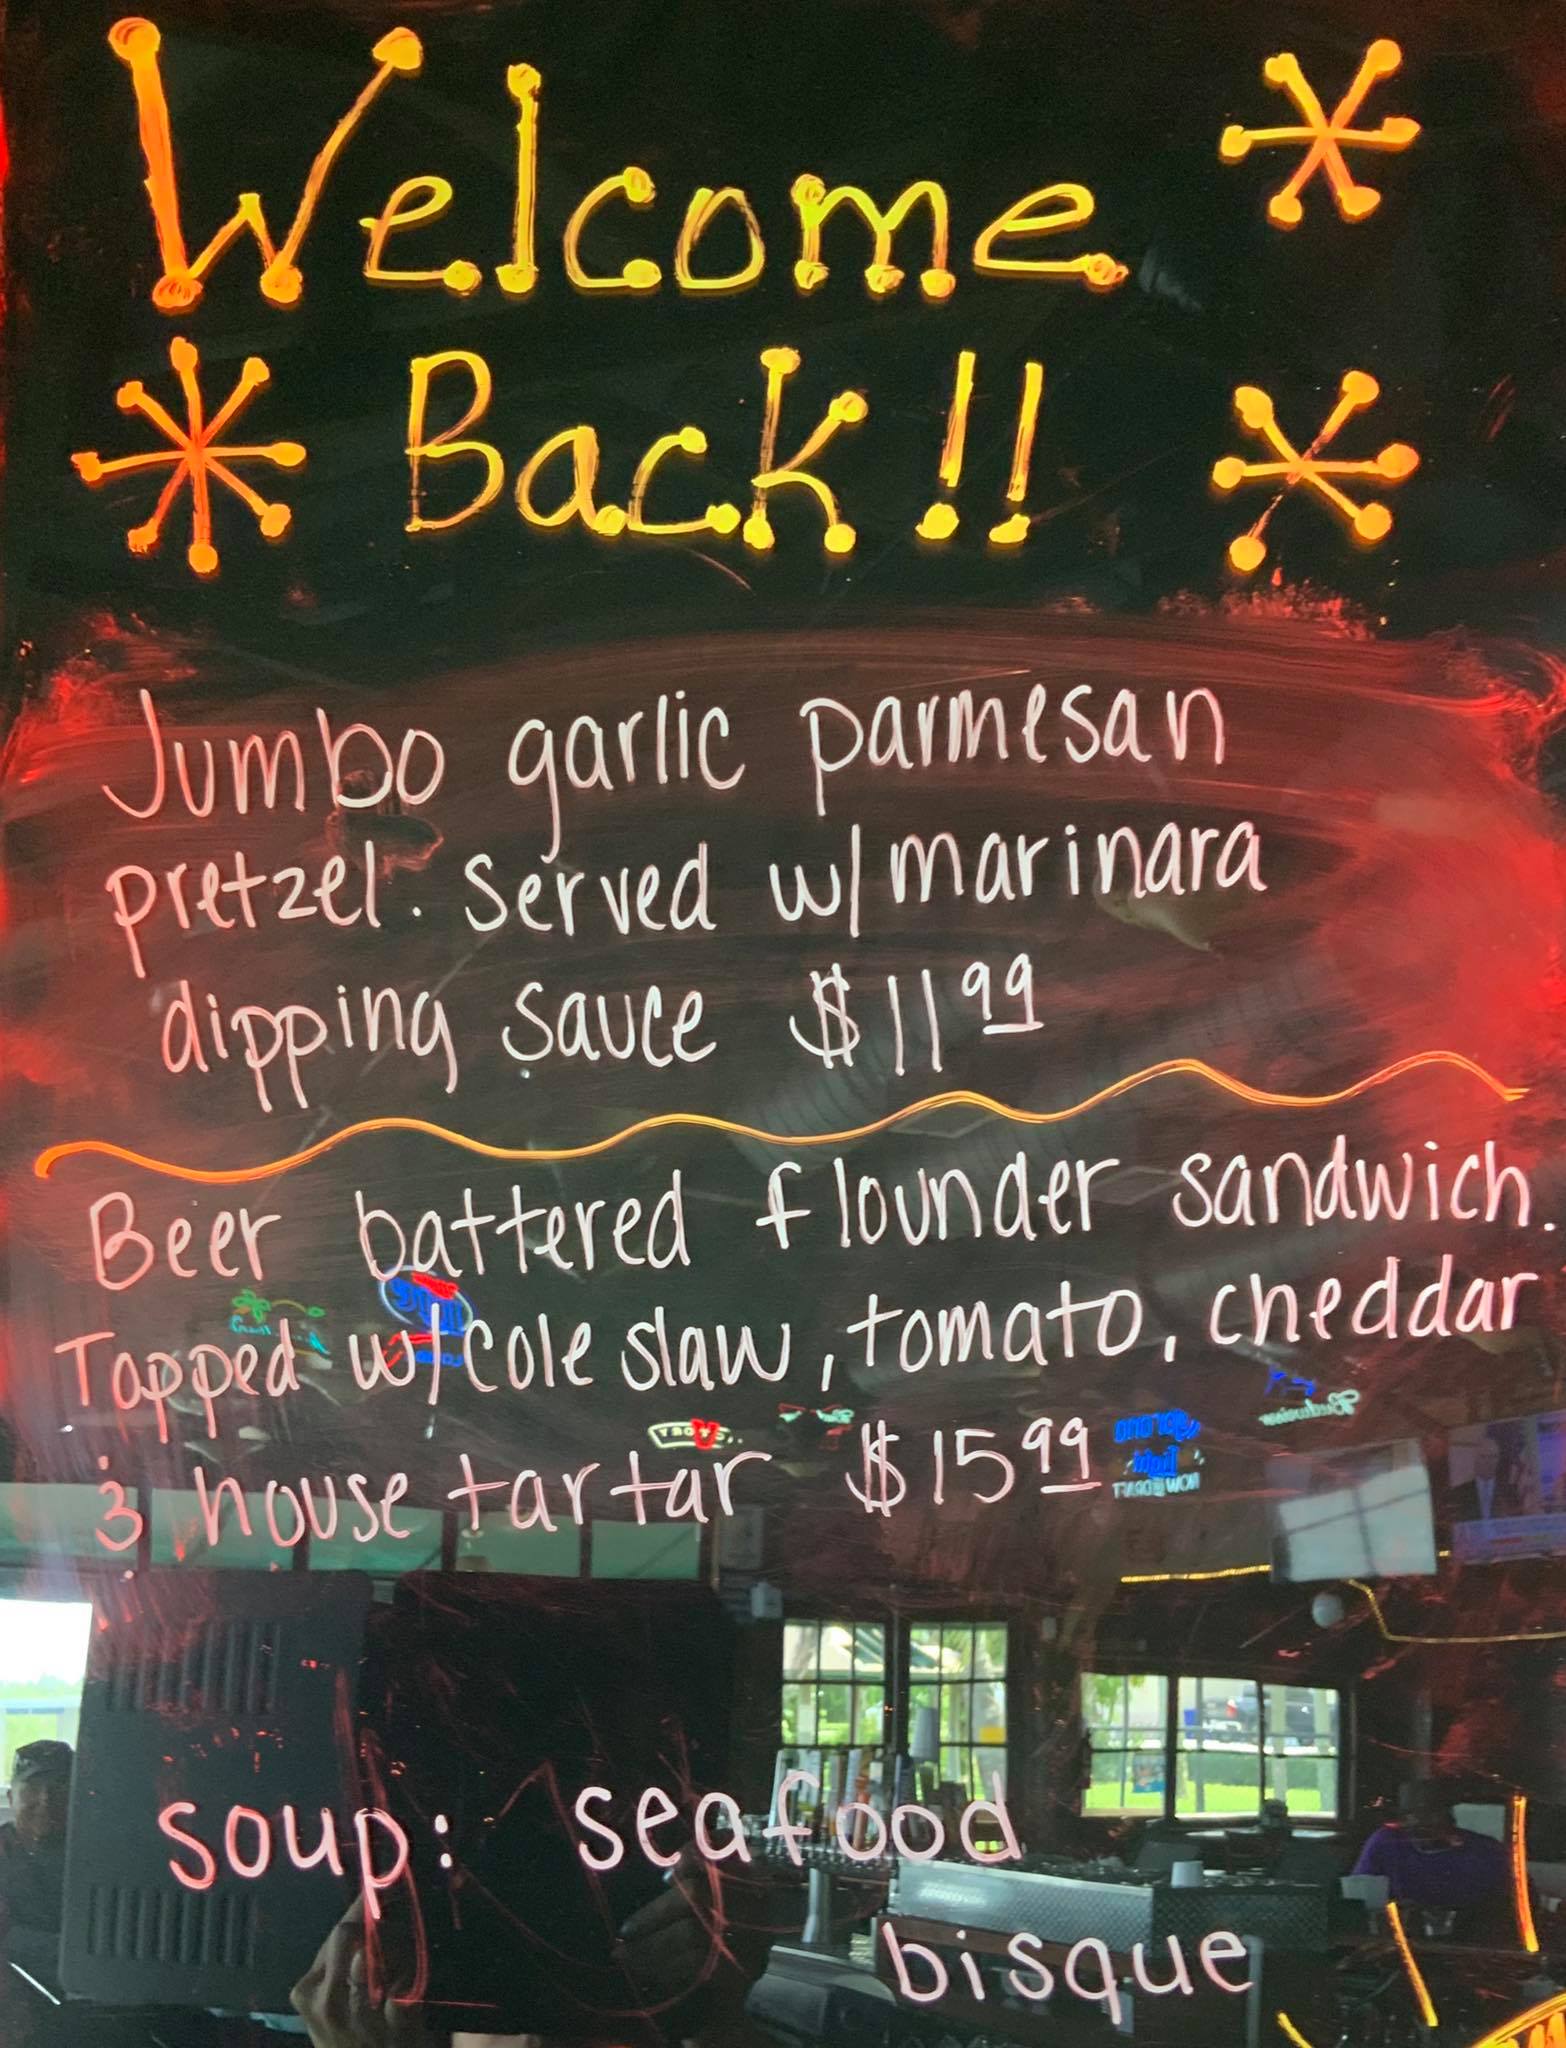 Welcome
Back!!
Jumbo garlic parmesan
pretzel. Served w/ marinara
dipping sauce $11.99
Beer battered flounder sandwich.
Topped w/ cole slaw, tomato, cheddar
& house tartar $15.99
soup: seafood
bisque
Budweiser
Corona
Light
NOW @ DRAFT